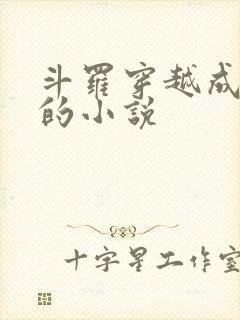 斗羅穿越成
的小說
十字星工作室